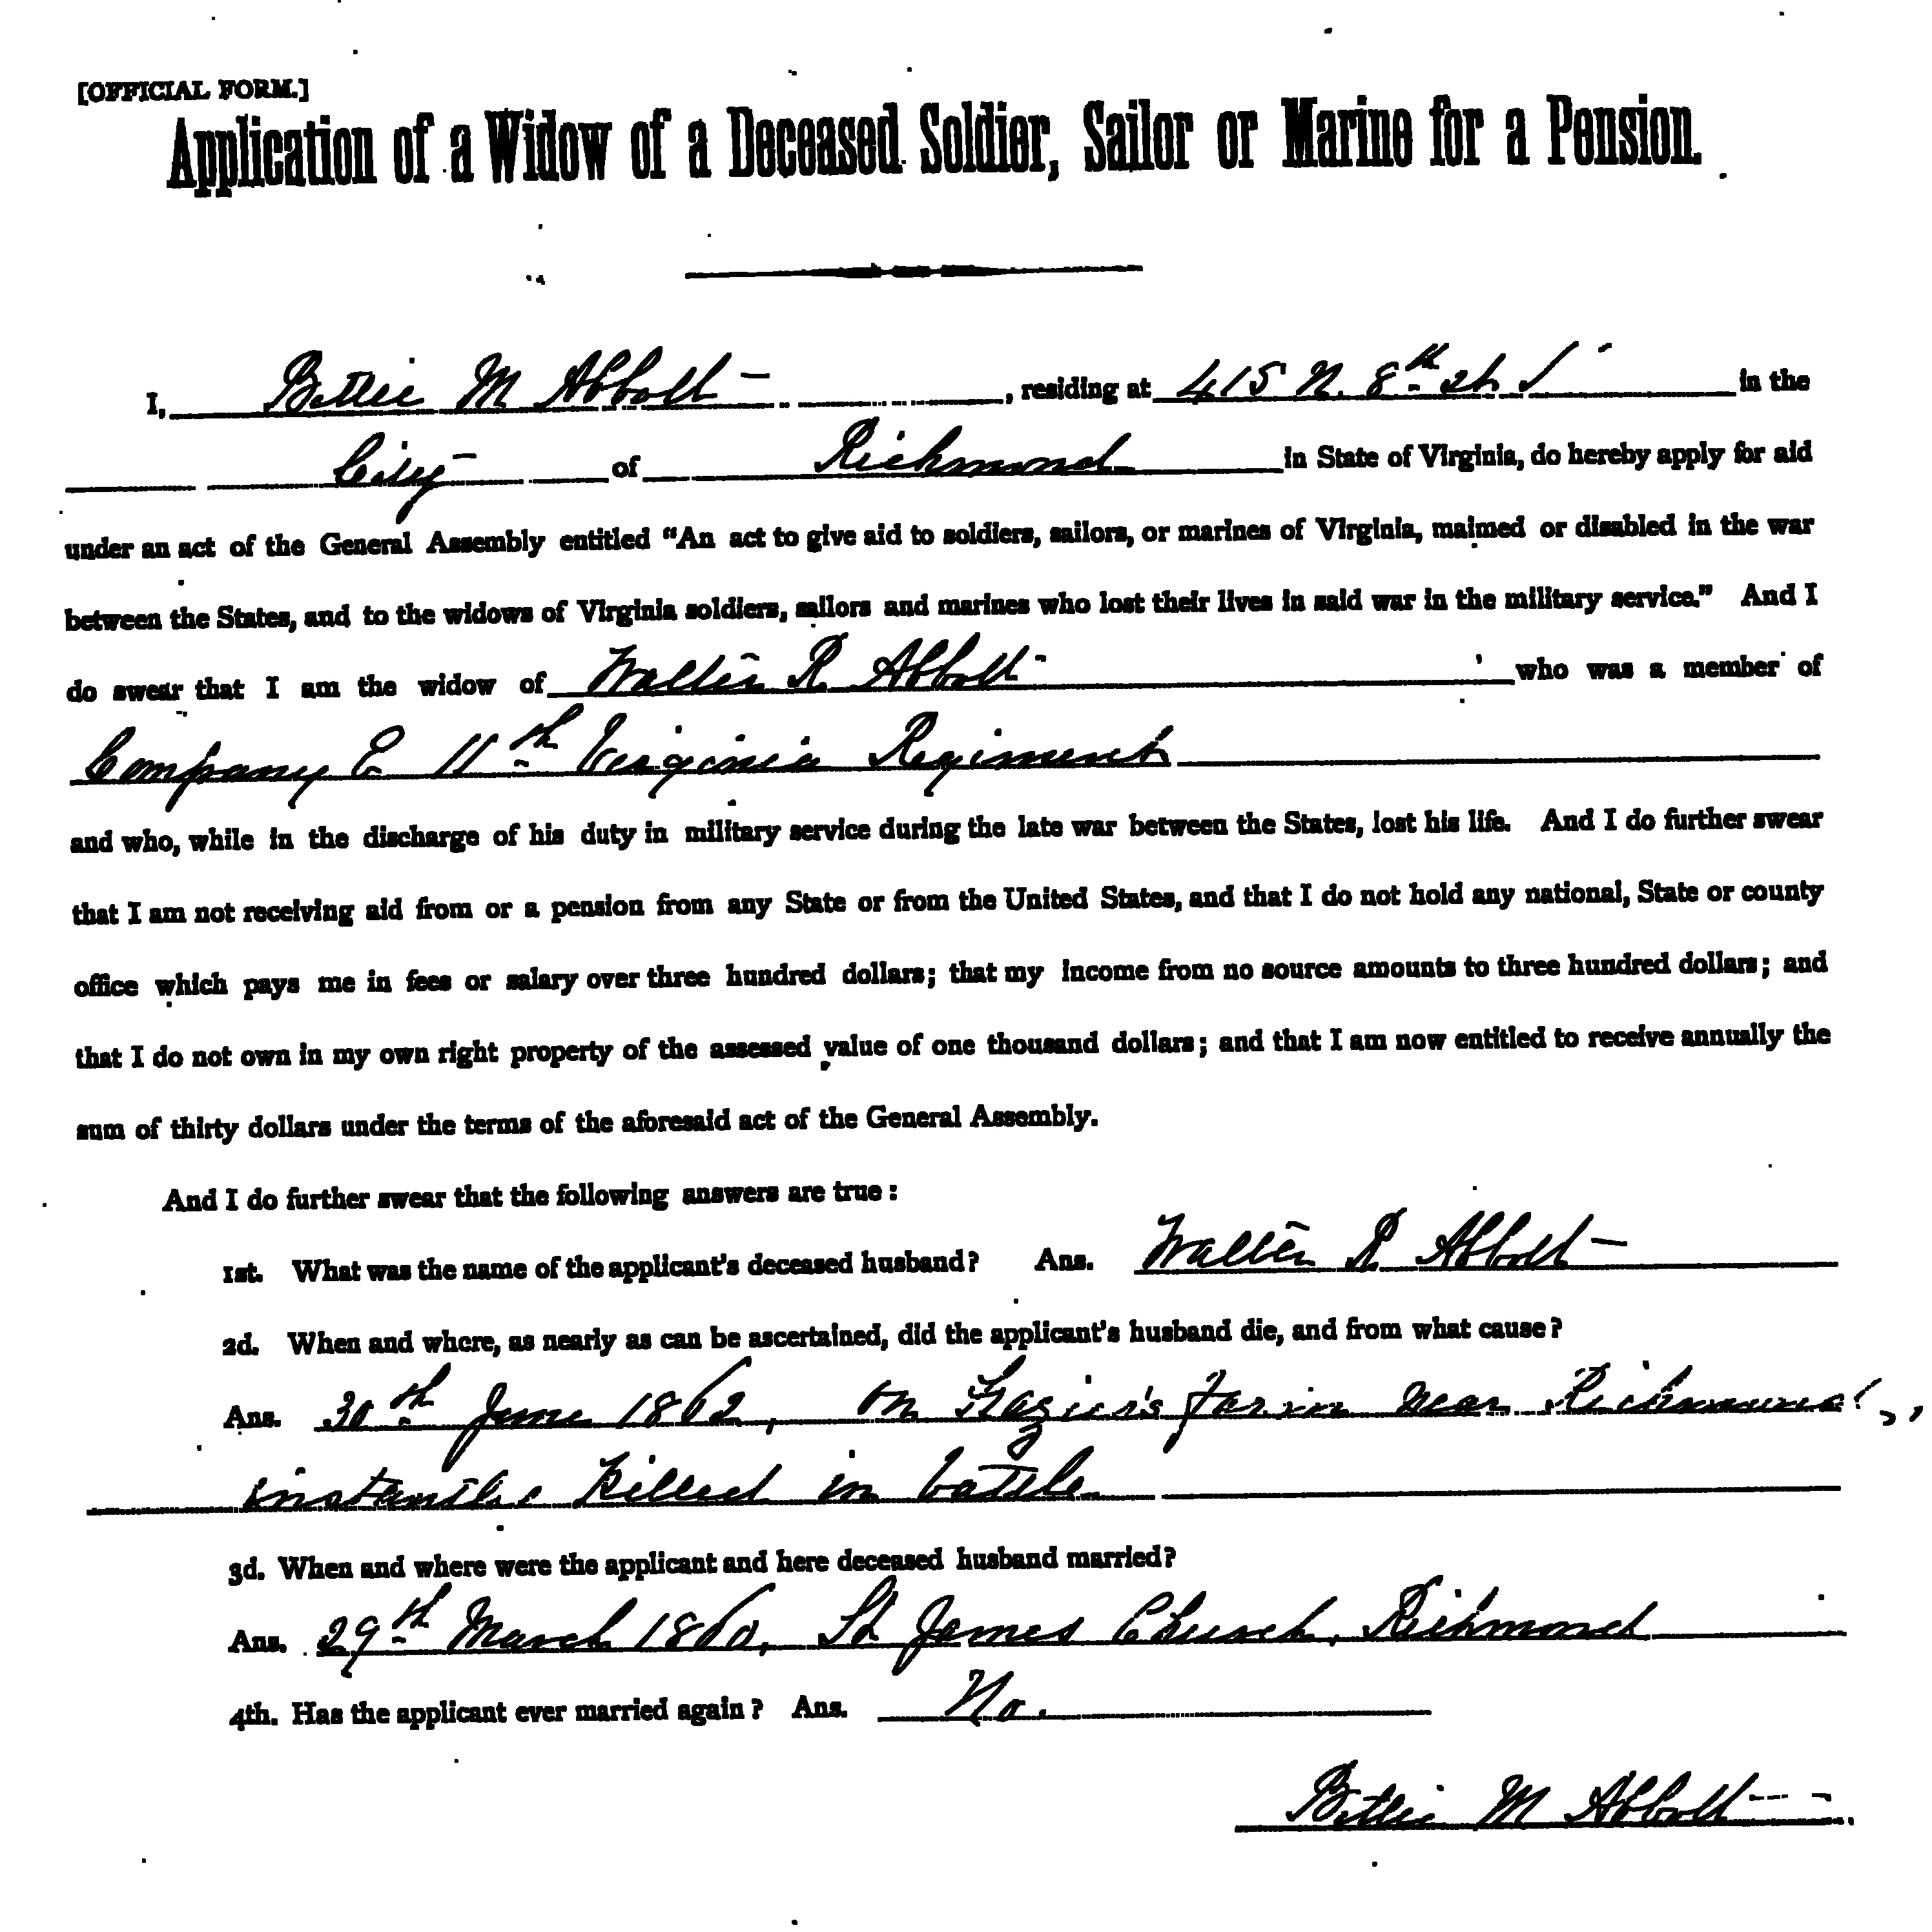 [OFFICIAL FORM.]
Application of a Widow of a Deceased Soldier, Sailor or Marine for a Pension.
I, Bettie M Abbott — , residing at 415 N. 8th St in the
City — of Richmond in State of Virginia, do hereby apply for aid
under an act of the General Assembly entitled “An act to give aid to soldiers, sailors, or marines of Virginia, maimed or disabled in the war
between the States, and to the widows of Virginia soldiers, sailors and marines who lost their lives in said war in the military service.” And I
do swear that I am the widow of Walter R Abbott - who was a member of
Company E 11th Virginia Regiment
and who, while in the discharge of his duty in military service during the late war between the States, lost his life. And I do further swear
that I am not receiving aid from or a pension from any State or from the United States, and that I do not hold any national, State or county
office which pays me in fees or salary over three hundred dollars; that my income from no source amounts to three hundred dollars; and
that I do not own in my own right property of the assessed value of one thousand dollars; and that I am now entitled to receive annually the
sum of thirty dollars under the terms of the aforesaid act of the General Assembly.
And I do further swear that the following answers are true :
1st. What was the name of the applicant's deceased husband? Ans. Walter R Abbott —
2d. When and where, as nearly as can be ascertained, did the applicant's husband die, and from what cause?
Ans. 30th June 1862, on Frazier's Farm near Richmond,
instantly killed in battle
3d. When and where were the applicant and here deceased husband married?
Ans. 29th March 1860, St James Church, Richmond
4th. Has the applicant ever married again? Ans. No.
Bettie M Abbott